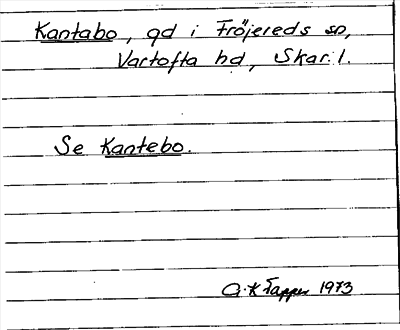 Kantabo, gd i Fröjereds sn,
Vartofta hd, Skar. l.
Se Kantebo.
A. K Tapper 1973